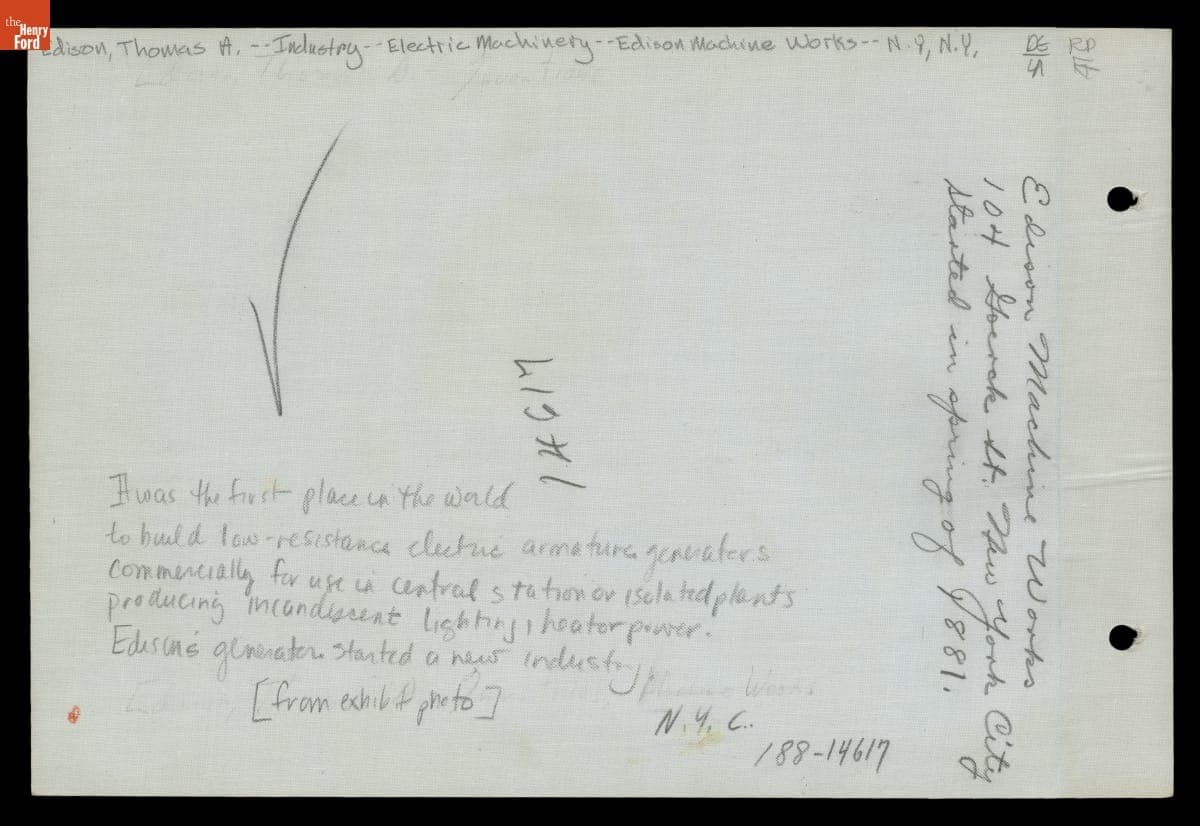 the
Henry
Ford
Edison, Thomas A. -- Industry -- Electric Machinery -- Edison Machine Works -- N.Y., N.Y.
DE
RP
Edison Machine Works
104 Goerck St. New York City
started in spring of 1881.
It was the first place in the world
to build low-resistance electric armature generators
commercially for use in central station or isolated plants
producing incandescent lighting, heat or power.
Edison's generator started a new industry
[from exhibit photo]
Works
N.Y.C.
188-14617